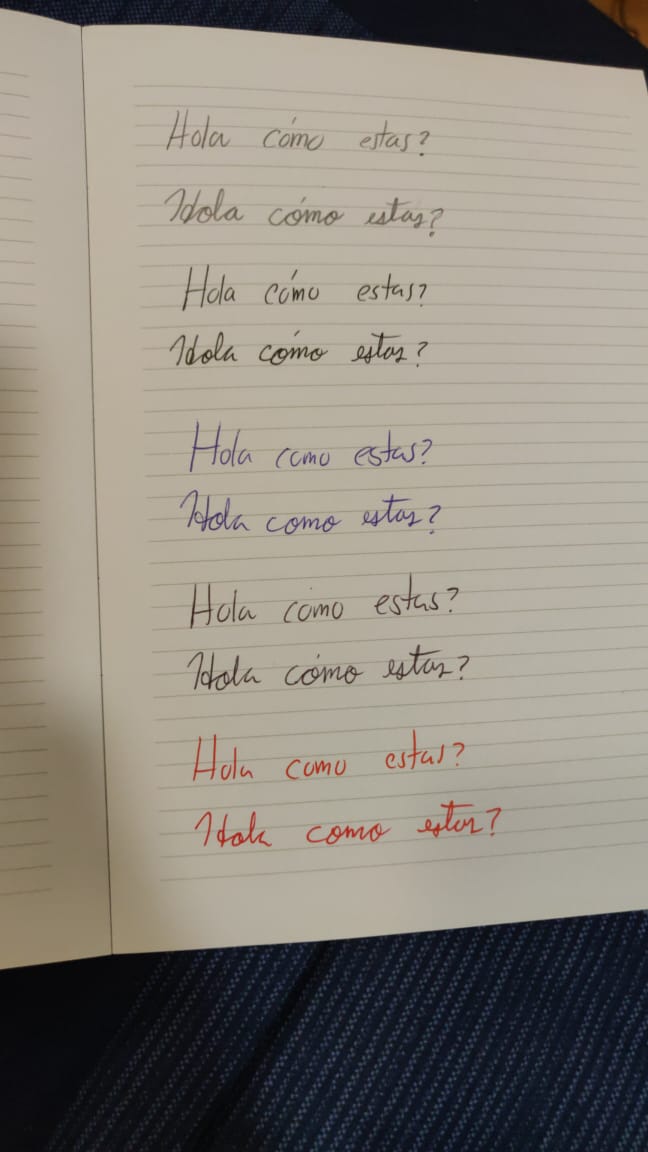 Hola cómo estas?
Hola cómo estas?
Hola cómo estas?
Hola cómo estas?
Hola como estas?
Hola como estas?
Hola como estas?
Hola cómo estas?
Hola como estas?
Hola como estas?